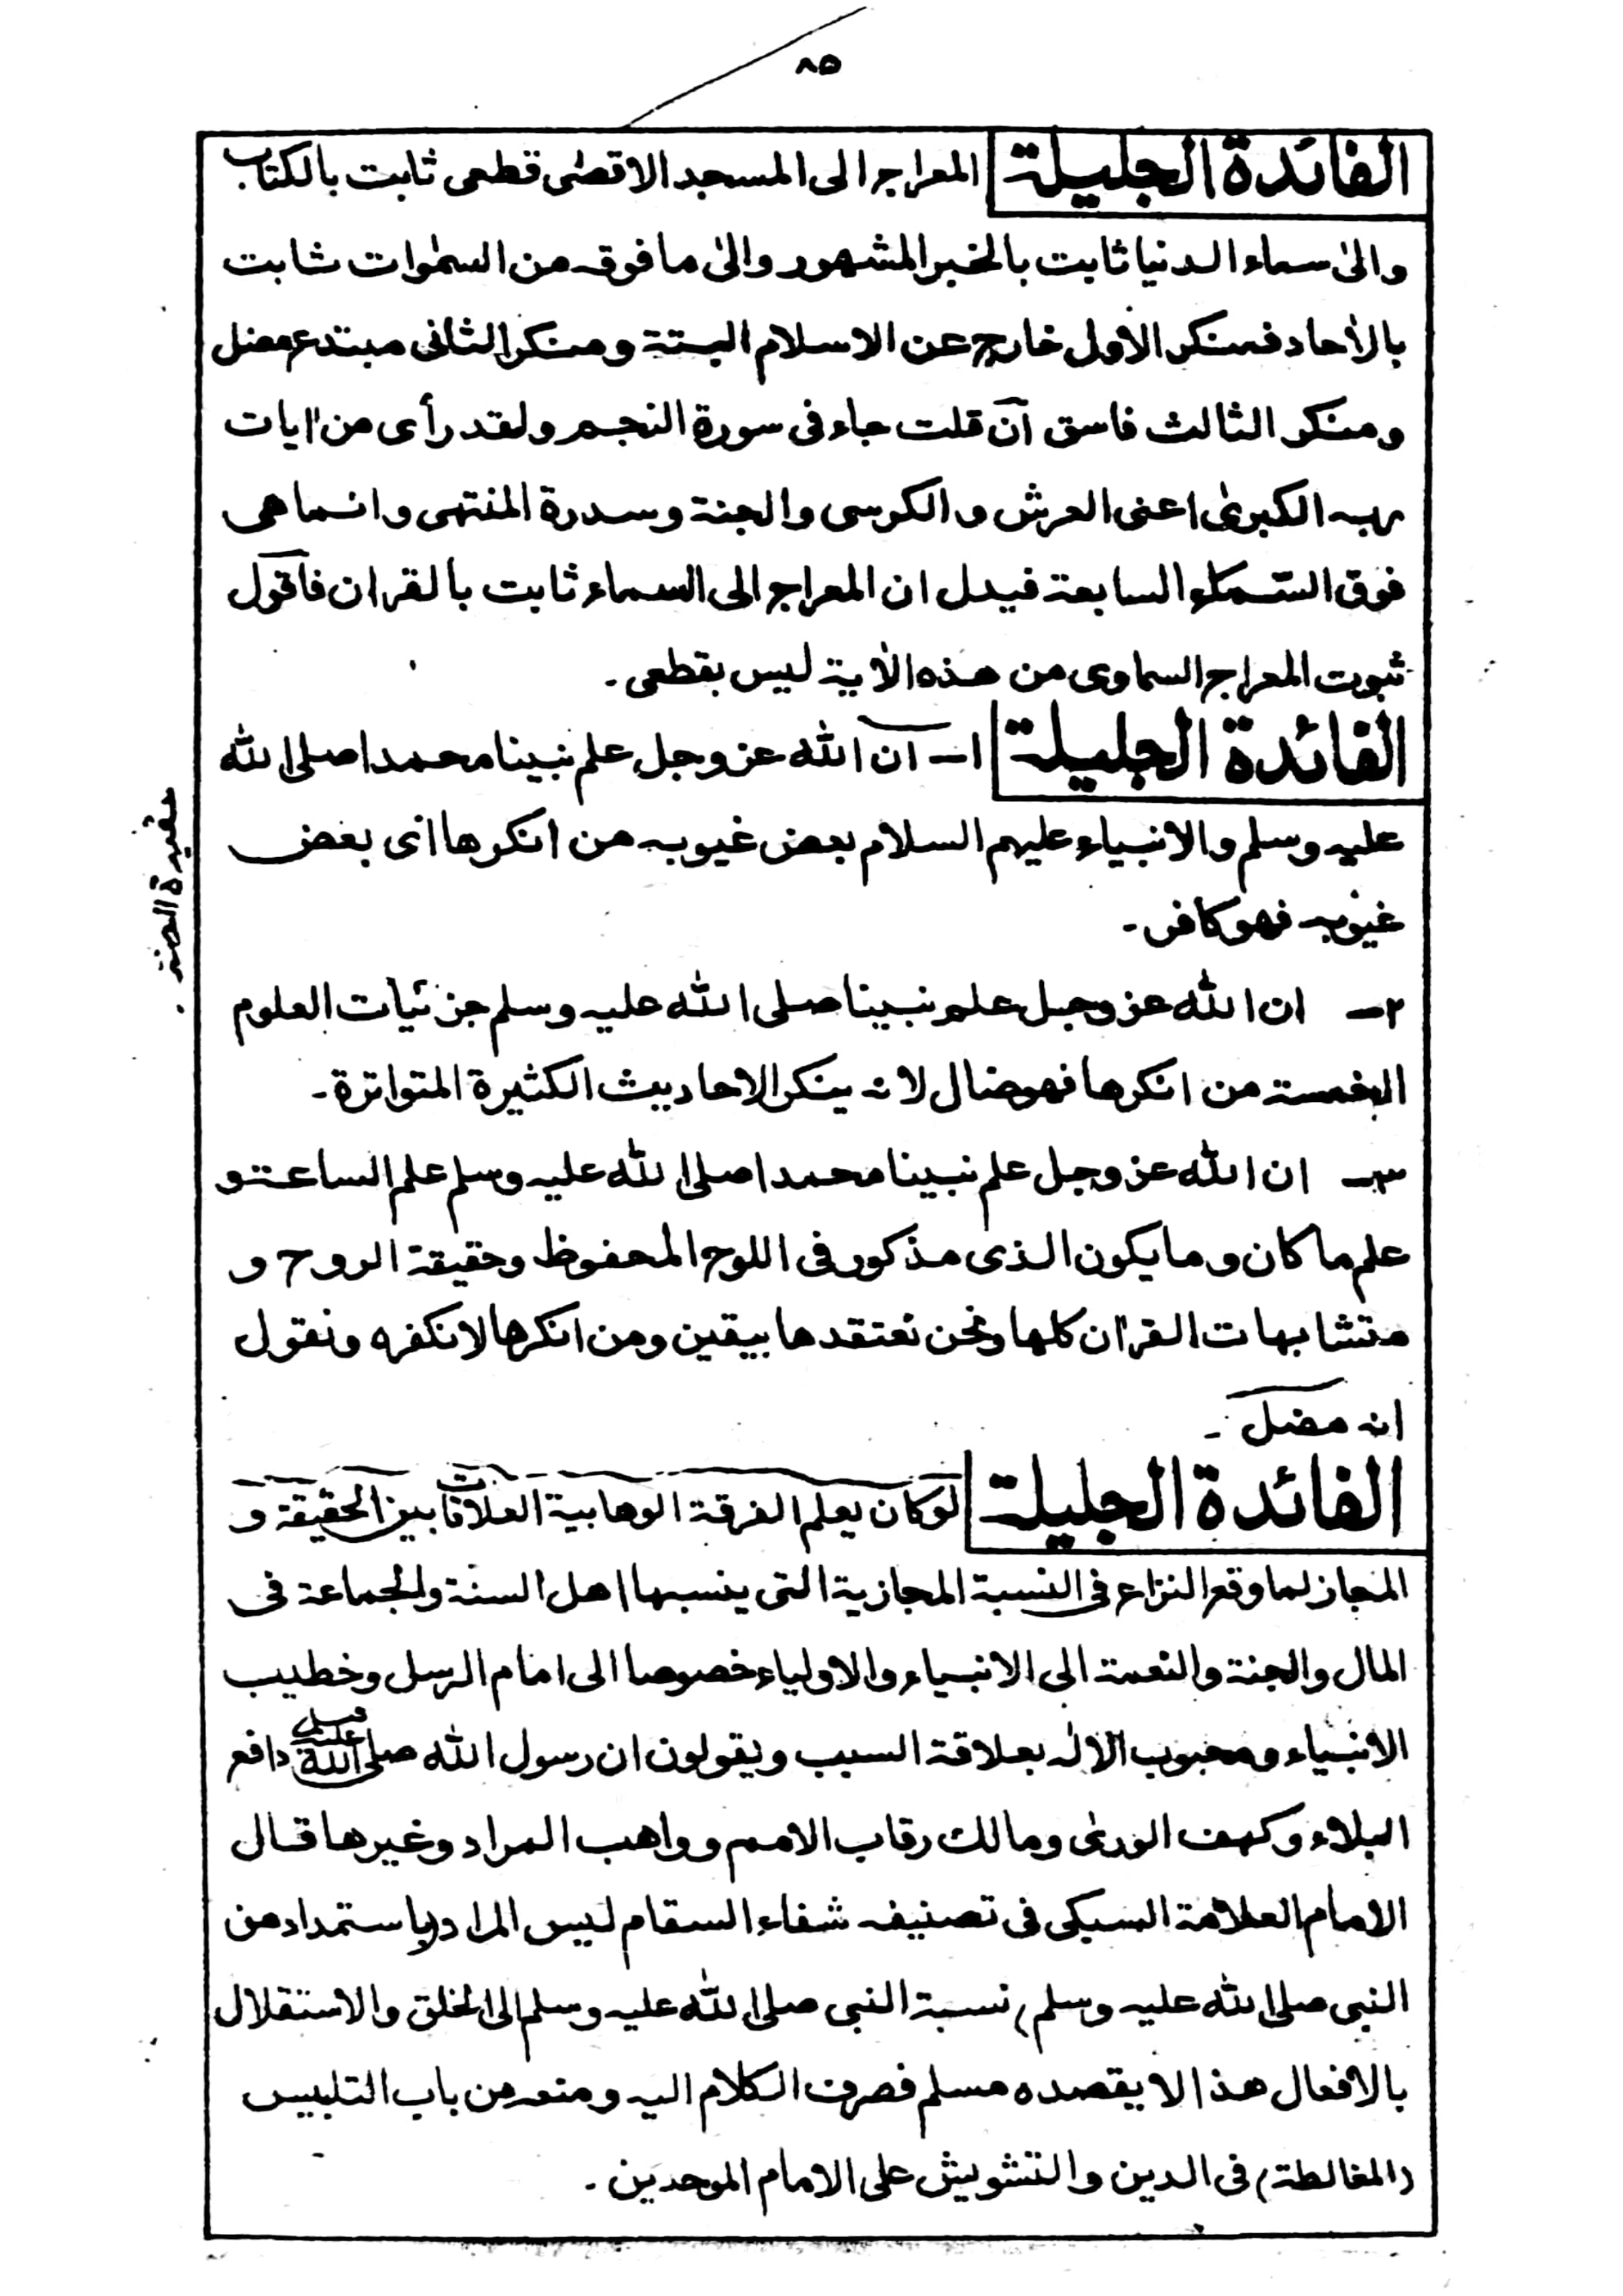 ٨٥
الفائدة الجليلة المعراج الى المسجد الاقصٰى قطعى ثابت بالكتاب
والىٰ سماء الدنيا ثابت بالخبر المشهور والىٰ ما فوقه من السمٰوات ثابت
بالأحاد فمنكر الاول خارج عن الاسلام البتة ومنكر الثانى مبتدع مضل
ومنكر الثالث فاسق آن قلت جاء فى سورة النجم ولقد رأى من اٰيات
ربه الكبرىٰ اعنى العرش والكرسى والجنة وسدرة المنتهى وانما هى
فوق السماء السابعة فيدل ان المعراج الى السماء ثابت بالقران فآقول
ثبوت المعراج السماوى من هذه الأية ليس بقطعى ۔
الفائدة الجليلة ا۔ آن الله عز وجل علم نبينا محمدا صلى الله
عليه وسلم والانبياء عليهم السلام بعض غيوبه من انكرها اى بعض
غيوبه فهو كافر ۔
۲۔ ان الله عز وجل علم نبينا صلى الله عليه وسلم جزئيات العلوم
الخمسة من انكرها فهو ضال لانه ينكر الاحاديث الكثيرة المتواترة ۔
۳۔ ان الله عز وجل علم نبينا محمدا صلى الله عليه وسلم علم الساعة و
علم ما كان وما يكون الذى مذكور فى اللوح المحفوظ وحقيقة الروح و
متشابهات القران كلها ونحن نعتقدها بيقين ومن انكرها لانكفره ونقول
انه مضل ۔
الفائدة الجليلة لوكان يعلم الفرقة الوهابية العلاقات بين الحقيقة و
المجاز لما وقع النزاع فى النسبة المجازية التى ينسبها اهل السنة والجماعة فى
المال والجنة والنعمة الى الانبياء والاولياء خصوصا الى امام الرسل وخطيب
الانبياء ومحبوب الالٰه بعلاقة السبب ويقولون ان رسول الله صلى الله عليه وسلم دافع
البلاء وكهف الورىٰ ومالك رقاب الامم وواهب المراد وغيرها قال
الامام العلامة السبكى فى تصنيفه شفاء السقام ليس المراد (باستمداد من
النبى صلى الله عليه وسلم) نسبة النبى صلى الله عليه وسلم الى الخلق والاستقلال
بالافعال هذا لا يقصده مسلم فصرف الكلام اليه ومنعه من باب التلبيس
(المغالطة) فى الدين والتشويش على الامام الموحدين ۔